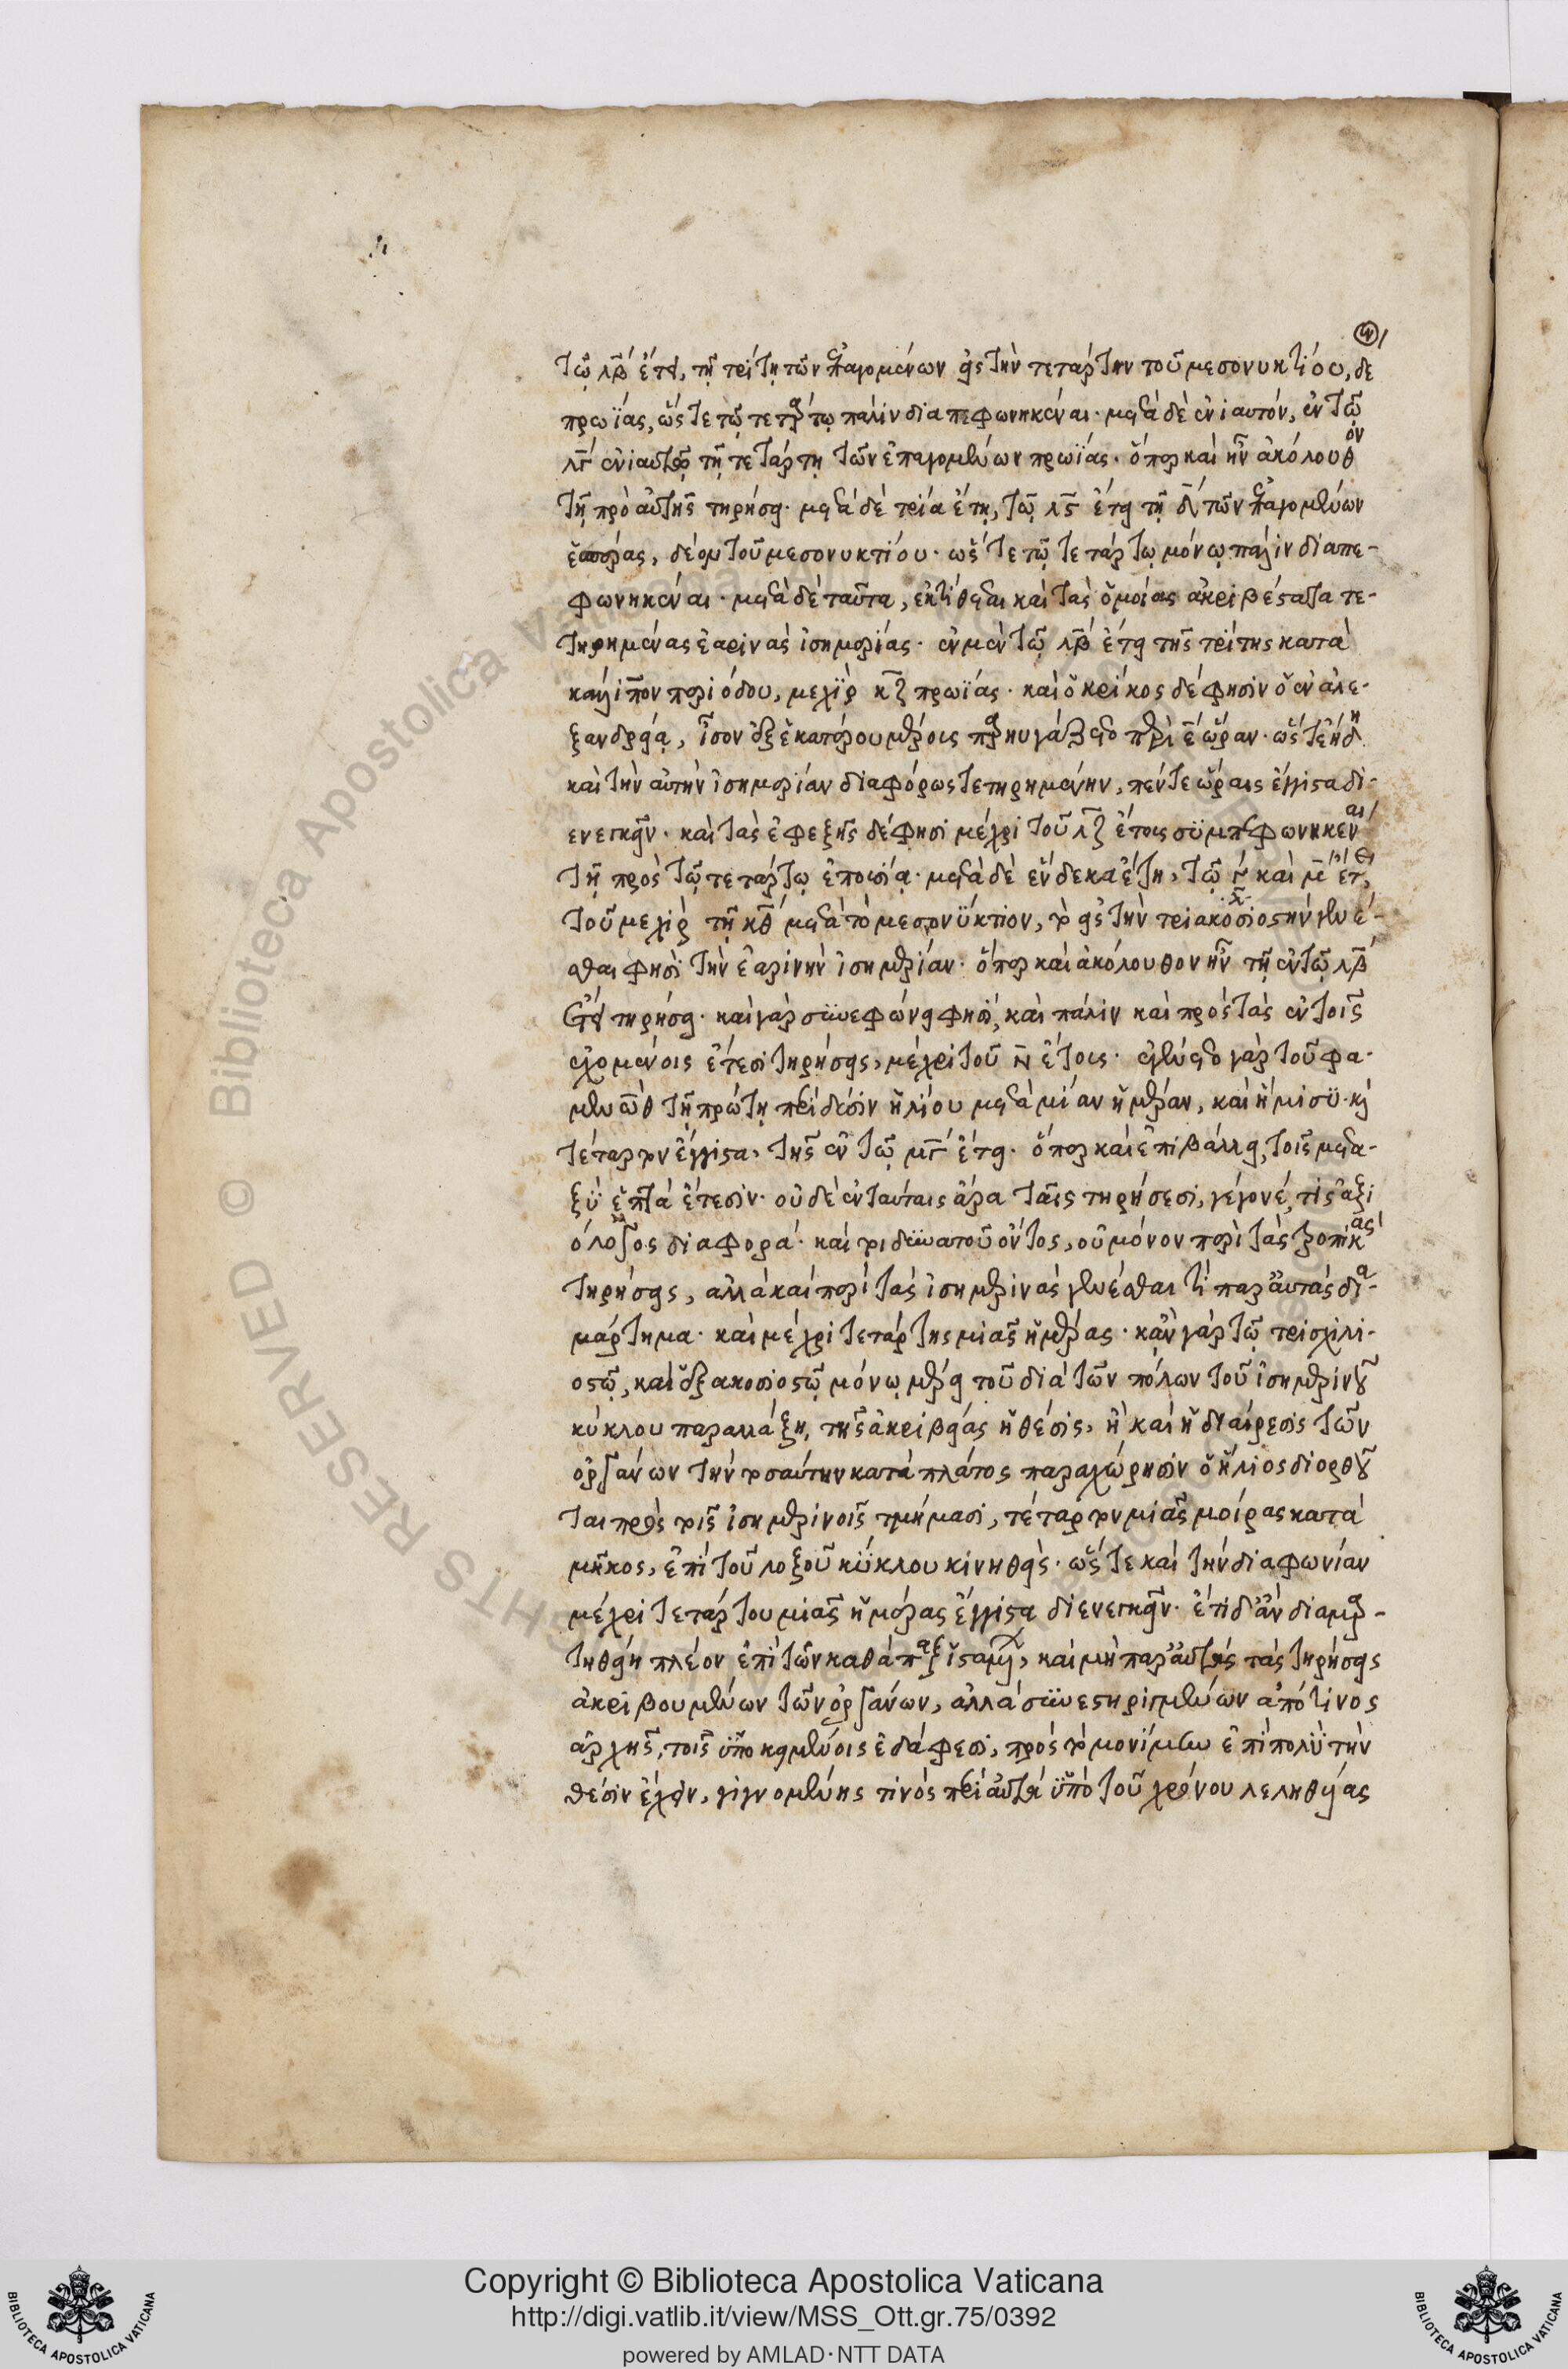 τῷ λβ̄ ἔτει, τῇ τρίτῃ τῶν ἐπαγομένων εἰς τὴν τετάρτην τοῦ μεσονυκτίου, δε
πρωΐας, ὥς τε τῷ τετάρτῳ πάλιν διαπεφωνηκέναι· μετὰ δὲ ἐνιαυτόν, ἐν τῷ
λγ̄ ἐνιαυτῷ τῇ τετάρτῃ τῶν ἐπαγομένων πρωΐας. ὅπερ καὶ ἦν ἀκόλουθον
τῇ πρὸ αὐτῆς τηρήσει· μετὰ δὲ τρία ἔτη, τῷ λϛ̄ ἔτει τῇ δ̄ τῶν ἐπαγομένων
ἑσπέρας, δέον τοῦ μεσονυκτίου· ὥς τε τῷ τετάρτῳ μόνῳ πάλιν διαπε-
φωνηκέναι· μετὰ δὲ ταῦτα, ἐκτίθεται καὶ τὰς ὁμοίας ἀκριβέστατα τε-
τηρημένας ἐαρινὰς ἰσημερίας· ἐν μὲν τῷ λβ̄ ἔτει τῆς τρίτης κατὰ
κάλιππον περιόδου, μεχὶρ κζ̄ πρωΐας· καὶ ὁ κρίκος δέ φησιν ὁ ἐν ἀλε-
ξανδρείᾳ, ἴσον ἐξ ἑκατέρου μέρους παρηυγάζετο περὶ ε̄ ὥραν· ὥς τε ἤδη
καὶ τὴν αὐτὴν ἰσημερίαν διαφόρως τετηρημένην, πέντε ὥραις ἔγγιστα δι-
ενεγκεῖν· καὶ τὰς ἐφεξῆς δέ φησι μέχρι τοῦ λζ̄ ἔτους συμπεφωνηκέναι
τῇ πρὸς τῷ τετάρτῳ ἐπουσίᾳ· μετὰ δὲ ἕνδεκα ἔτη, τῷ γ̄ καὶ μ̄ ἔτει,
τοῦ μεχὶρ τῇ κθ̄ μετὰ τὸ μεσονύκτιον, τὸ εἰς τὴν τριακοστὴν γενέ-
σθαι φησὶ τὴν ἐαρινὴν ἰσημερίαν· ὅπερ καὶ ἀκόλουθον ἦν τῇ ἐν τῷ λβ̄
ἔτει τηρήσει· καὶ γὰρ συνεφώνει φησί, καὶ πάλιν καὶ πρὸς τὰς ἐν τοῖς
ἐχομένοις ἔτεσι τηρήσεις, μέχρι τοῦ ν̄ ἔτους· ἐγένετο γὰρ τοῦ φα-
μενὼθ τῇ πρώτῃ περὶ δύσιν ἡλίου μετὰ μίαν ἡμέραν, καὶ ἥμισυ· καὶ
τέταρτον ἔγγιστα, τῆς ἐν τῷ μγ̄ ἔτει· ὅπερ καὶ ἐπιβάλλει, τοῖς μετα-
ξὺ ἑπτὰ ἔτεσιν· οὐδὲ ἐν ταύταις ἄρα ταῖς τηρήσεσι, γέγονέ, τις ἀξι
όλογος διαφορά· καὶ τοι δυνατοῦ ὄντος, οὐ μόνον περὶ τὰς τροπικὰς
τηρήσεις, ἀλλὰ καὶ περὶ τὰς ἰσημερινὰς γενέσθαι τί παρ' αὐτὰς δι-
μάρτημα· καὶ μέχρι τετάρτης μιᾶς ἡμέρας· κἂν γὰρ τῷ τρισχιλι-
οστῷ, καὶ ἑξακοσιοστῷ μόνῳ μέρει τοῦ διὰ τῶν πόλων τοῦ ἰσημερινοῦ
κύκλου παραλλάξῃ, τῆς ἀκριβείας ἡ θέσις, ἢ καὶ ἡ διαίρεσις τῶν
ὀργάνων τὴν τοσαύτην κατὰ πλάτος παραχώρησιν ὁ ἥλιος διορθοῦ
ται πρὸς τοῖς ἰσημερινοῖς τμήμασι, τέταρτον μιᾶς μοίρας κατὰ
μῆκος, ἐπὶ τοῦ λοξοῦ κύκλου κινηθείς· ὥς τε καὶ τὴν διαφωνίαν
μέχρι τετάρτου μιᾶς ἡμέρας ἔγγιστα διενεγκεῖν· ἔτι δ' ἂν διαμαρ-
τηθείη πλέον ἐπὶ τῶν καθάπαξ ἱσταμένων, καὶ μὴ παρ' αὐτὰς τὰς τηρήσεις
ἀκριβουμένων τῶν ὀργάνων, ἀλλὰ συνεστηριγμένων ἀπό τινος
ἀρχῆς, τοῖς ὑποκειμένοις ἐδάφεσι, πρὸς τὸ μονίμον ἐπὶ πολὺ τὴν
θέσιν ἔχειν, γιγνομένης τινὸς περὶ αὐτὰ ὑπὸ τοῦ χρόνου λεληθυίας
Copyright © Biblioteca Apostolica Vaticana
http://digi.vatlib.it/view/MSS_Ott.gr.75/0392
powered by AMLAD·NTT DATA